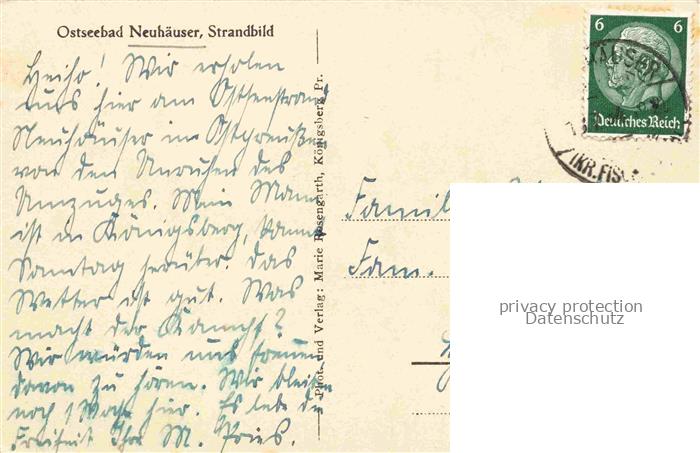 Ostseebad Neuhäuser, Strandbild
Heiho! Wir erholen
uns hier am Ostseestrand
Neuhäuser in Ostpreußen
von den Unruhen des
Umzuges. Mein Mann
ist in Königsberg, kommt
Sonntag herüber. Das
Wetter ist gut. Was
macht der Kampf?
Wir würden uns freuen
davon zu hören. Wir bleiben
noch 1 Woche hier. Es lebe die
Freiheit Ihre M. Pries.
Phot. und Verlag: Marie Rosengarth, Königsberg Pr.
6 6
Deutsches Reich
HÄUSER
(KR.FISC
Famil
Fam.
privacy protection
Datenschutz